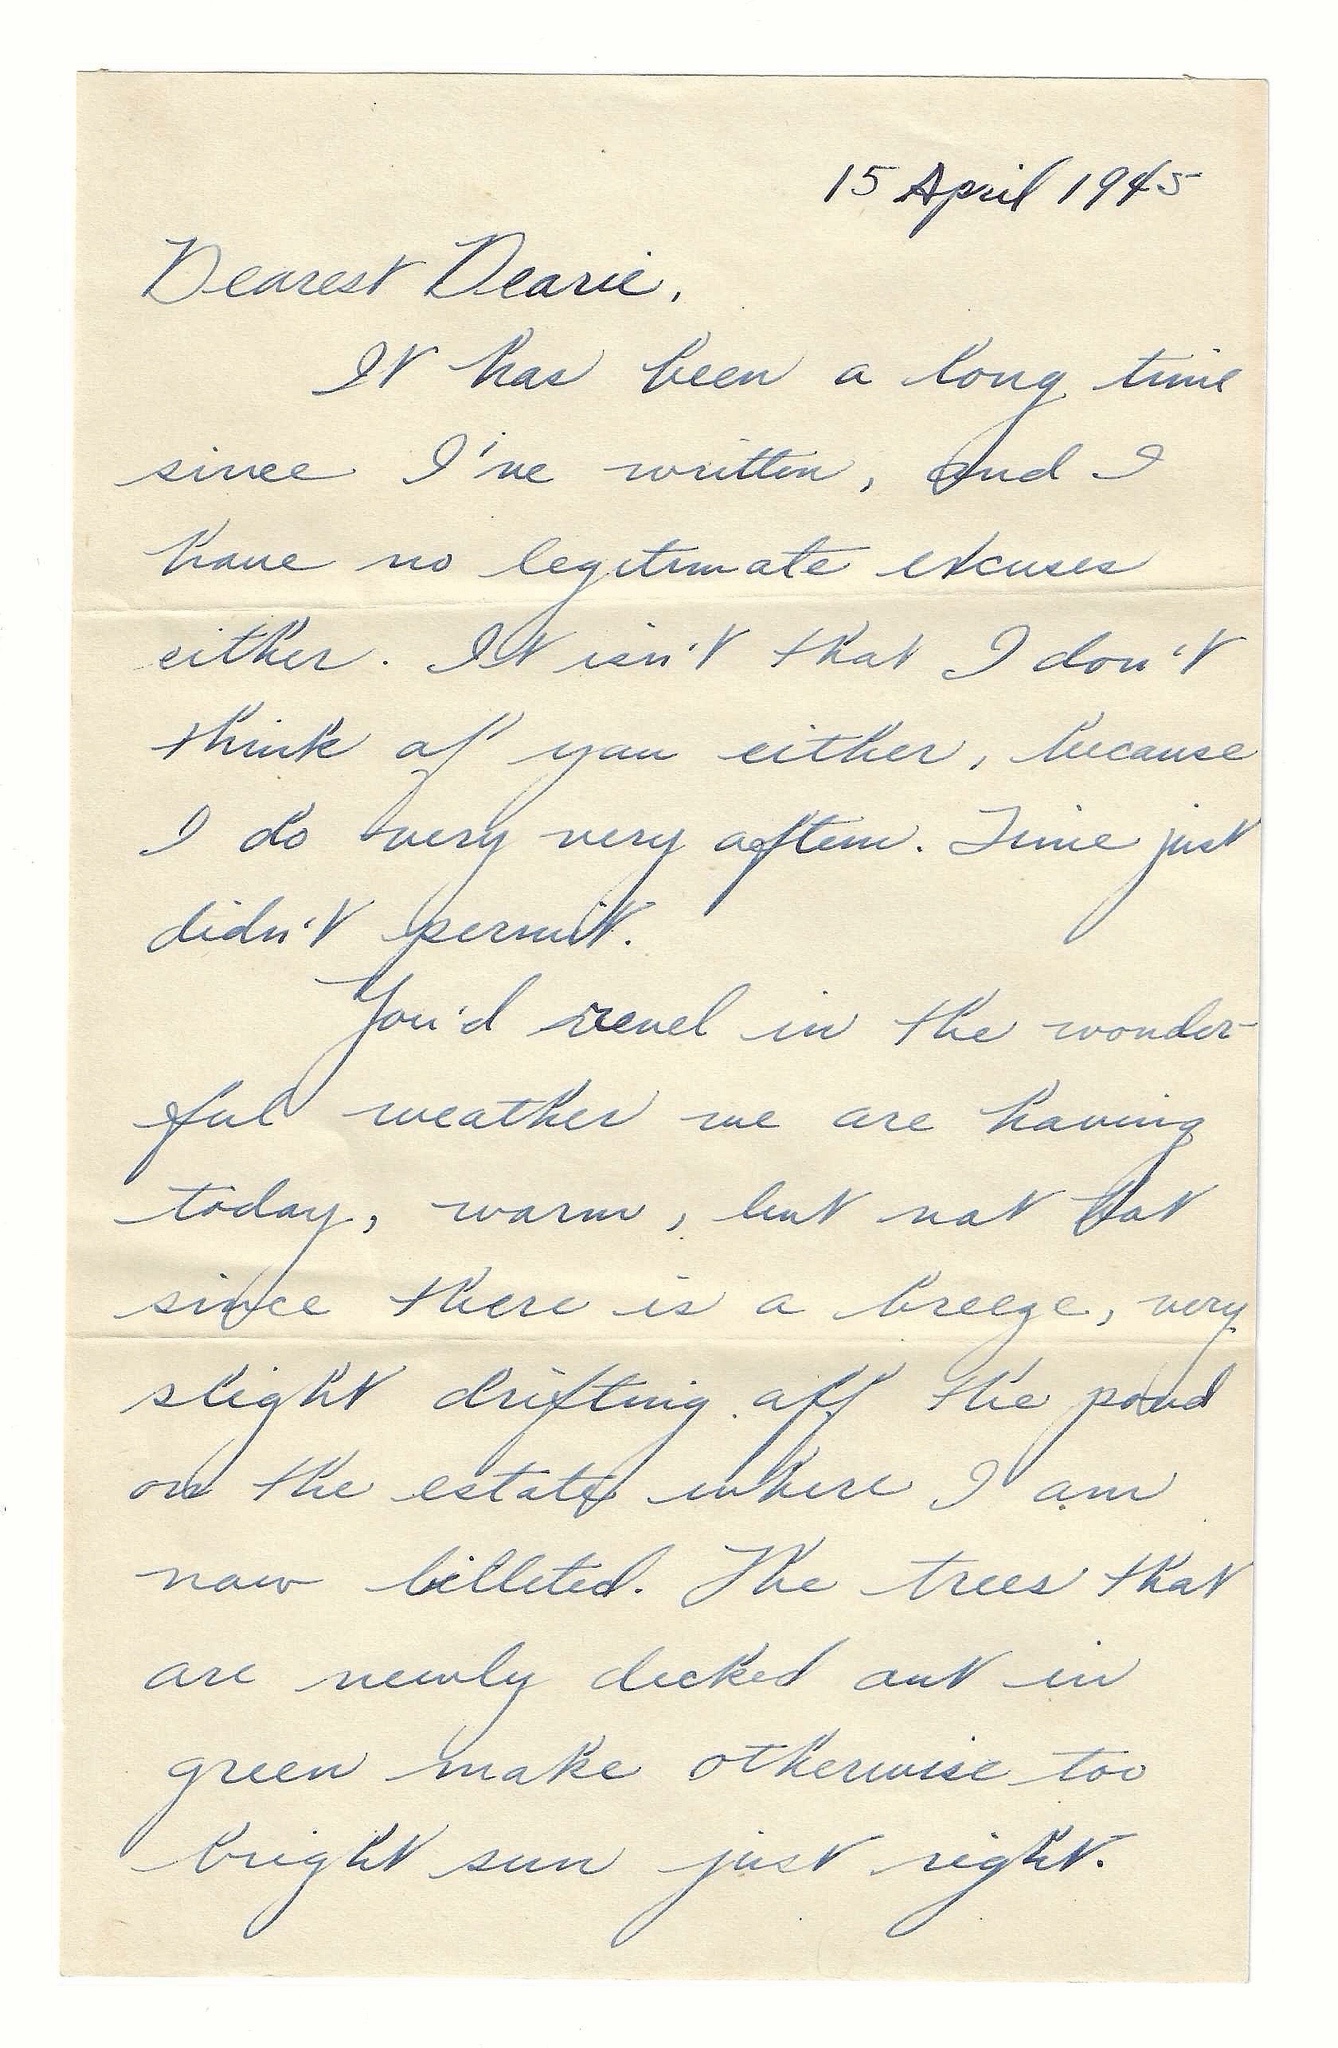 15 April 1945
Dearest Dearie,
It has been a long time
since I've written, and I
have no legitimate excuses
either. It isn't that I don't
think of you either, because
I do very very often. Time just
didn't permit.
You'd revel in the wonder-
ful weather we are having
today, warm, but not hot
since there is a breeze, very
slight drifting off the pond
on the estate where I am
now billeted. The trees that
are newly decked out in
green make otherwise too
bright sun just right.